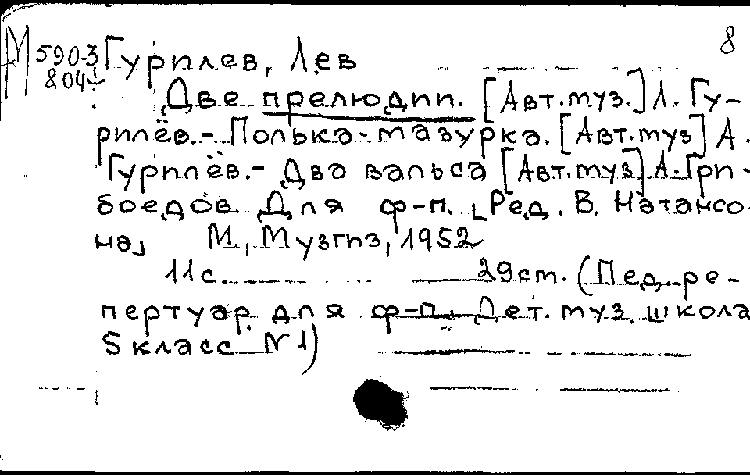 8
М 5903 Гурилев, Лев
804
Две прелюдии. [Авт. муз.] Л. Гу-
рилёв. - Полька-мазурка. [Авт. муз] А.
Гурилёв. - Два вальса [Авт. муз] А. Гри-
боедов. Для ф-п. [Ред. В. Натансо-
на] М., Музгиз, 1952
11 с. 29 см. (Пед. ре-
пертуар для ф-п. Дет. муз. школа
5 класс N 1)